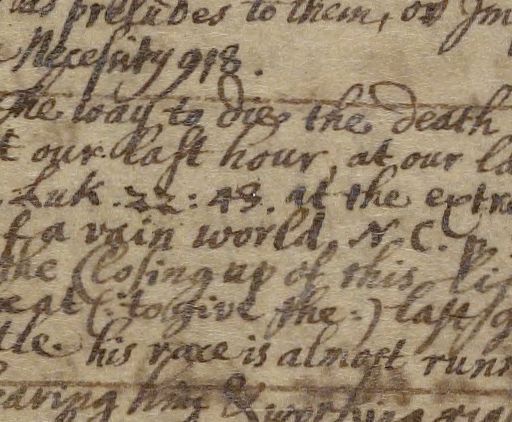 preludes to them, or Im
Necessity 918.
The way to die the death
t our last hour, at our la
Luk. 22: 48. at the extre
f a vain world. N. C. p.
the closing up of this li
eat (: to give the :) last g
tle. his race is almost runn
earing him & working